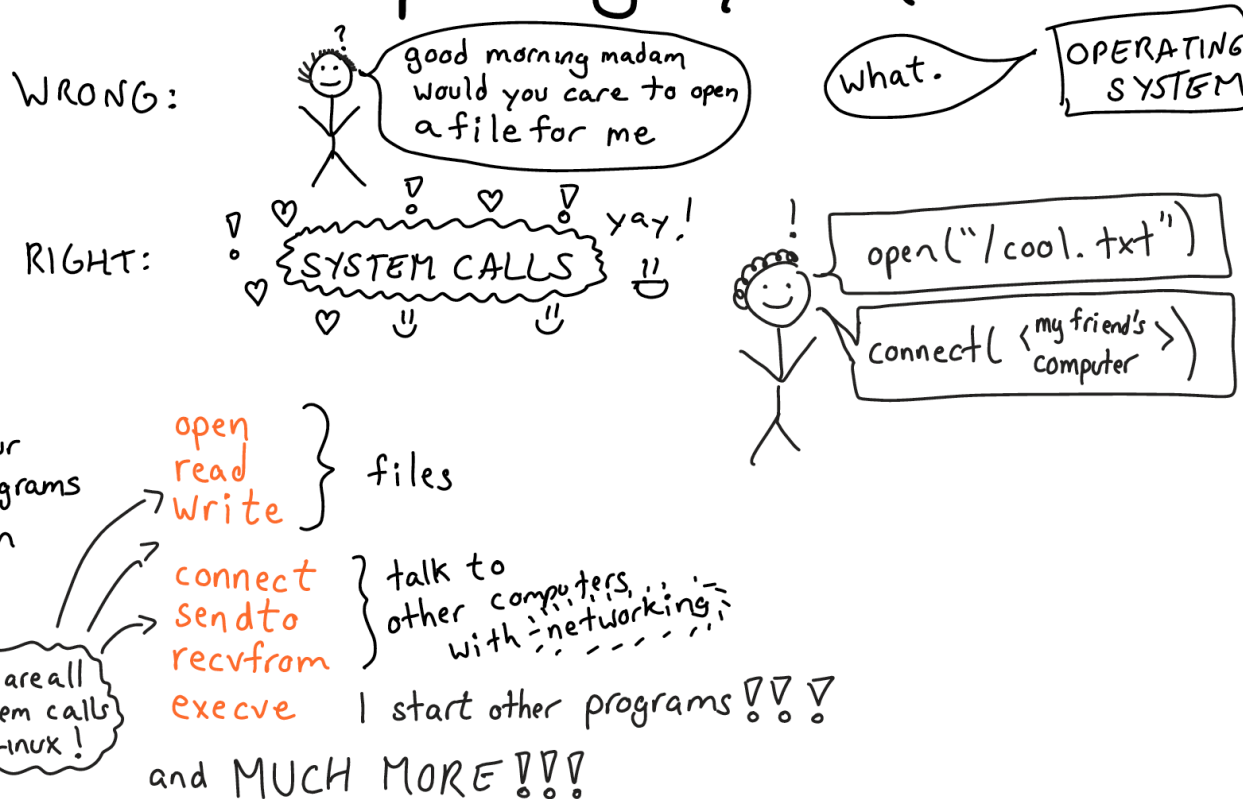 WRONG:
?
good morning madam
would you care to open
a file for me
what.
OPERATING
SYSTEM
RIGHT:
! ! !
SYSTEM CALLS
yay!
!
open("/cool.txt")
connect( <my friend's
computer> )
open
read
write
files
connect
sendto
recvfrom
talk to
other computers
with networking
execve
I start other programs!!!
and MUCH MORE!!!
are all
calls